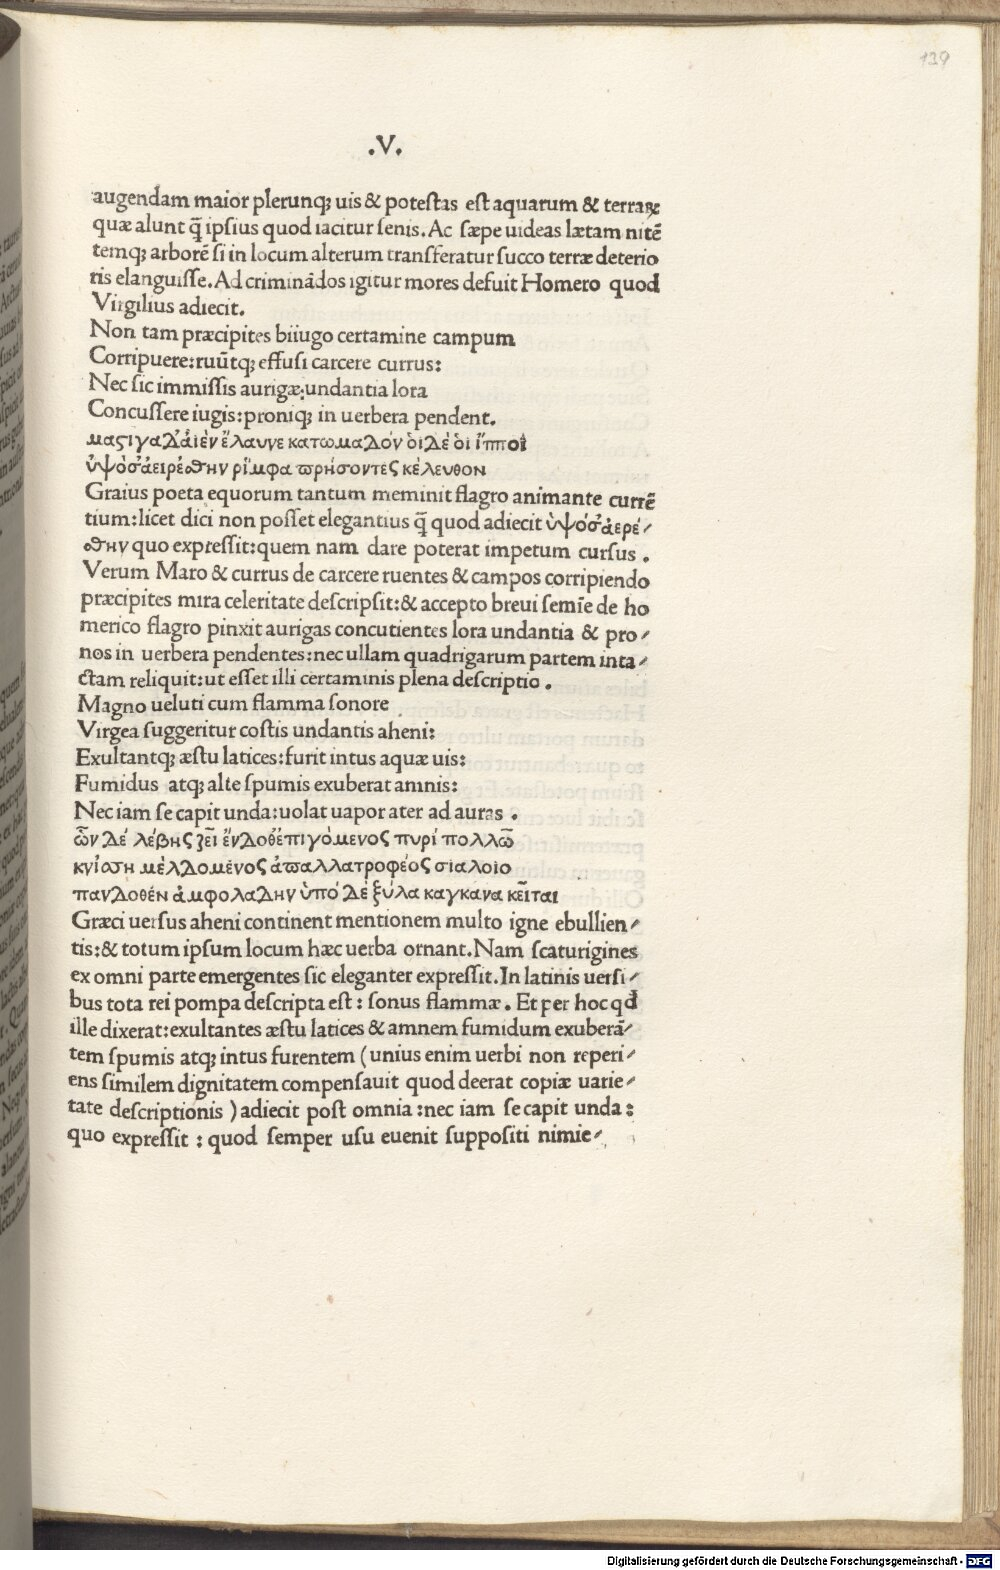 139
.V.
augendam maior plerunq; uis & potestas est aquarum & terraꝝ
quæ alunt q̄ ipsius quod iacitur senis. Ac sæpe uideas lætam nitē
temq; arborē si in locum alterum transferatur succo terræ deterio
ris elanguisse. Ad criminādos igitur mores defuit Homero quod
Virgilius adiecit.
Non tam præcipites biiugo certamine campum
Corripuere: ruūtq; effusi carcere currus:
Nec sic immissis aurigæ: undantia lora
Concussere iugis: proniq; in uerbera pendent.
μαϛιγα δ' ἀιὲν ἔλαυνε κατωμαδόν ὁι δέ ὁι ἵπποι
ὑψόσ' ἀειρέσθην ρίμφα πρήσοντές κέλευθον
Graius poeta equorum tantum meminit flagro animante currē
tium: licet dici non posset elegantius q̄ quod adiecit ὑψόσ' ἀερέ⸗
σθην quo expressit: quem nam dare poterat impetum cursus .
Verum Maro & currus de carcere ruentes & campos corripiendo
præcipites mira celeritate descripsit: & accepto breui semīe de ho
merico flagro pinxit aurigas concutientes lora undantia & pro⸗
nos in uerbera pendentes: nec ullam quadrigarum partem inta⸗
ctam reliquit: ut esset illi certaminis plena descriptio .
Magno ueluti cum flamma sonore
Virgea suggeritur costis undantis aheni:
Exultantq; æstu latices: furit intus aquæ uis:
Fumidus atq; alte spumis exuberat amnis:
Nec iam se capit unda: uolat uapor ater ad auras .
ὣν δέ λέβης ζεῖ ἔνδοθ' ἐπιγόμενος πυρί πολλῶ
κνίση μέλδομένος ἁπαλλατροφέος σιαλοιο
πανδοθέν ἀμφολαδην ὑπό δέ ξύλα καγκανα κεῖται
Græci uersus aheni continent mentionem multo igne ebullien⸗
tis: & totum ipsum locum hæc uerba ornant. Nam scaturigines
ex omni parte emergentes sic eleganter expressit. In latinis uersi⸗
bus tota rei pompa descripta est : sonus flammæ . Et per hoc qd
ille dixerat: exultantes æstu latices & amnem fumidum exuberā⸗
tem spumis atq; intus furentem ( unius enim uerbi non reperi⸗
ens similem dignitatem compensauit quod deerat copiæ uarie⸗
tate descriptionis ) adiecit post omnia : nec iam se capit unda :
quo expressit : quod semper usu euenit suppositi nimie⸗
Digitalisierung gefördert durch die Deutsche Forschungsgemeinschaft - DFG